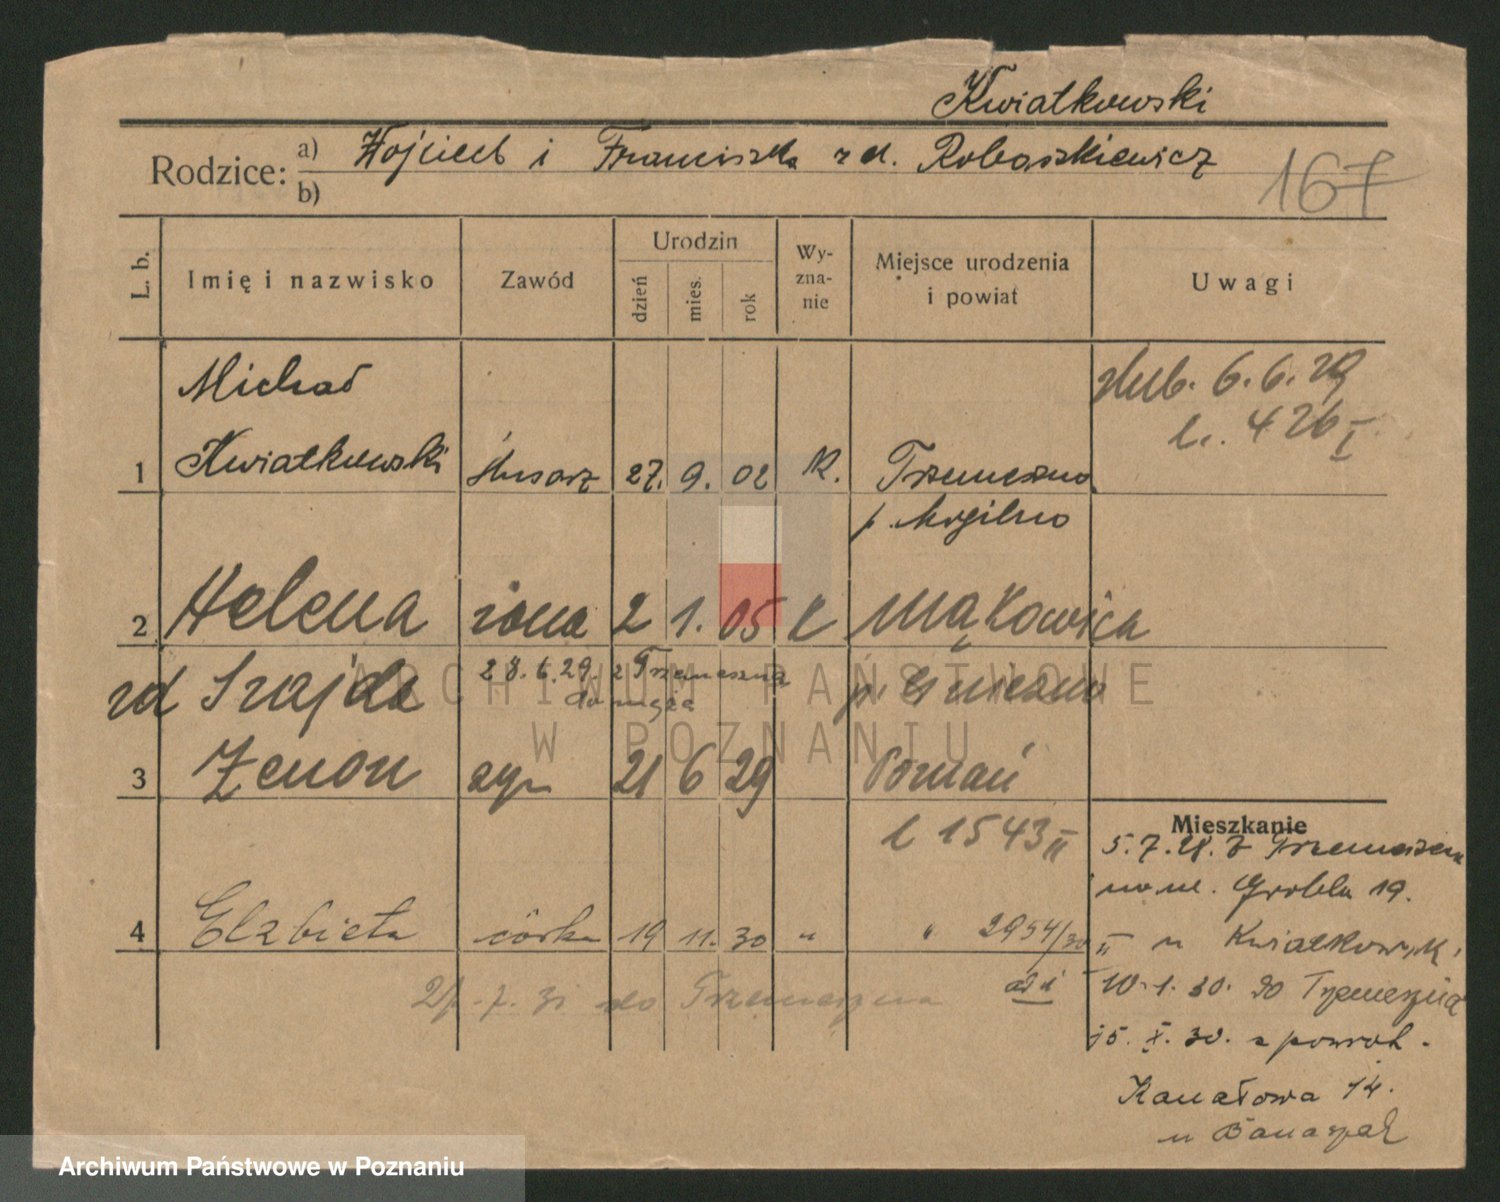 Kwiatkowski
Rodzice: a) Wojciech i Franciszka z d. Robaszkiewicz
b)
167
L. b. Imię i nazwisko Zawód Urodzin dzień mies. rok Wyznanie Miejsce urodzenia i powiat Uwagi
Michał
ślub. 6.6.29
l. 426 I
1 Kwiatkowski ślusarz 27. 9. 02 k. Trzemeszno
p. Mogilno
2 Helena żona 2 1. 05 k Mąkowica
zd Szajda 28.6.29. z Trzemeszna p. Gniezno
do męża
3 Zenon syn 21 6 29 Poznań
l 1543 II
Mieszkanie
5.7.28. z Trzemeszna
Grobla 19.
4 Elżbieta córka 19 11. 30 " " 2954/30
II u Kwiatkowsk.
10.1.30. do Trzemeszna
7. 31 do Trzemeszna
15. X. 30. z powrot.
Kanałowa 14.
u Banaszak
ARCHIWUM PAŃSTWOWE
W POZNANIU
Archiwum Państwowe w Poznaniu